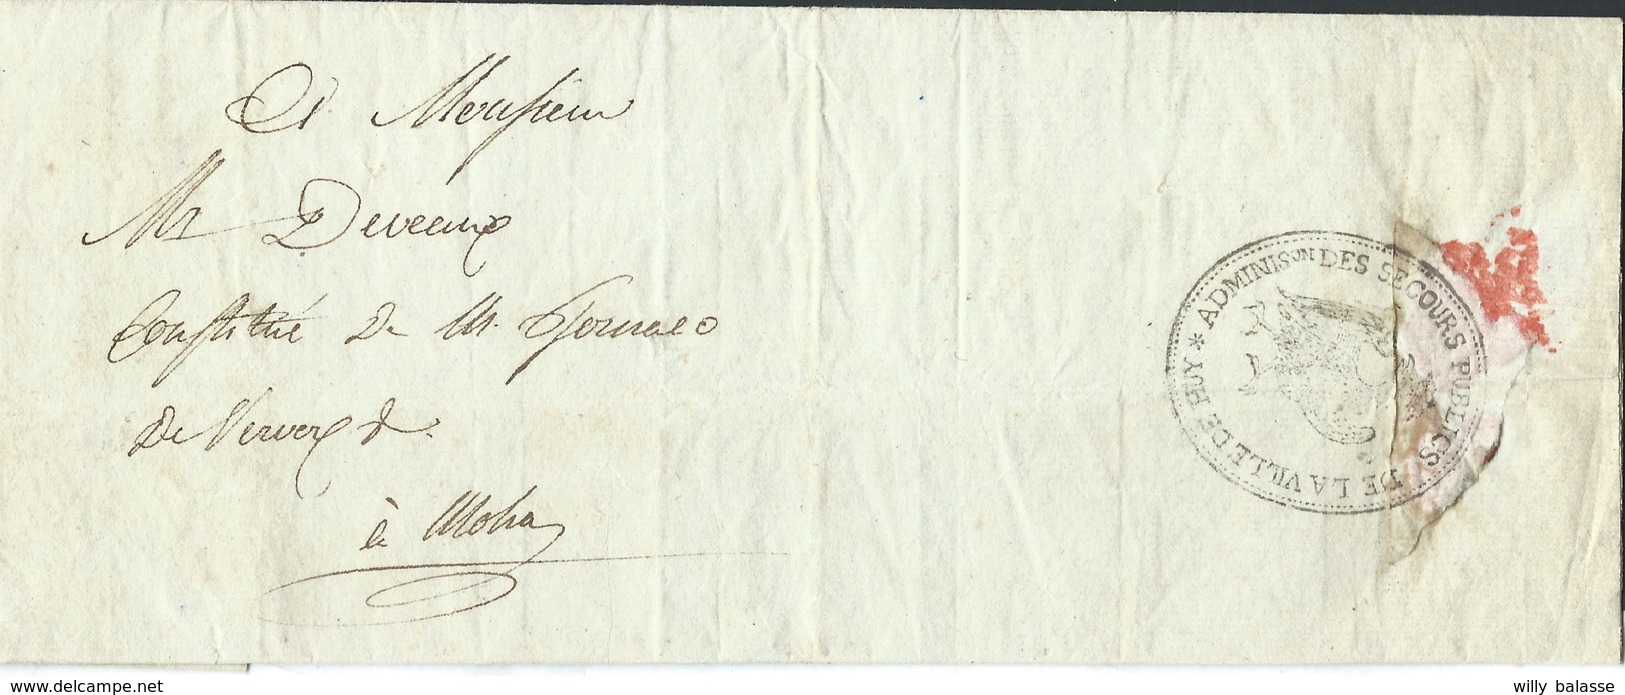 A Monsieur
Mr Deveaux
Constitué de M.
de
à Moha
* ADMINISON DES SECOURS PUBLICS DE LA VILLE DE HUY
www.delcampe.net
willy balasse